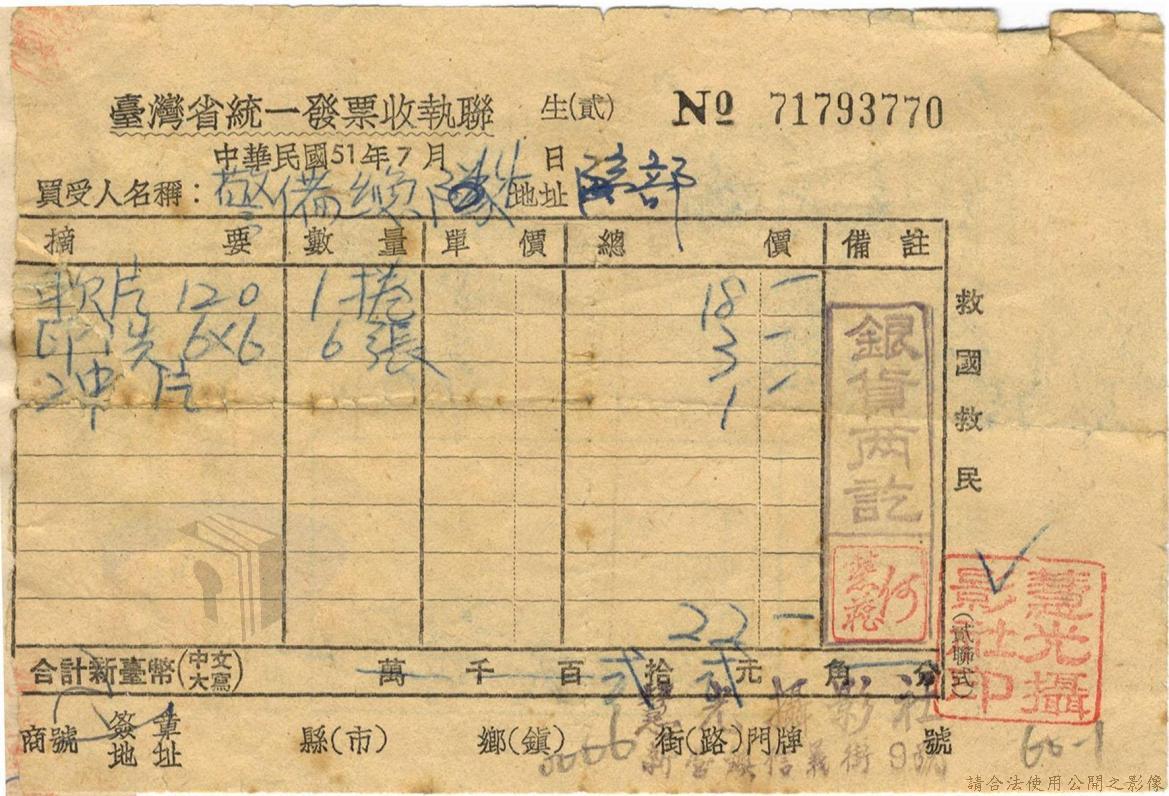 臺灣省統一發票收執聯 生(貳) № 71793770
中華民國51年7月 日
買受人名稱:警備總隊 地址 隊部
摘要 數量 單價 總價 備註
軟片 120 1捲 18 —
印洗 6×6 6張 3 —
冲片 1 —
銀貨两訖
救國救民
(貳聯式)
慧光攝影社印
22 —
合計新臺幣(中文大寫) 萬千百貳拾貳元角分
慧光攝影社
商號 簽章地址 縣(市) 鄉(鎮) 街(路)門牌 號
新營鎮信義街9號
60-1
請合法使用公開之影像